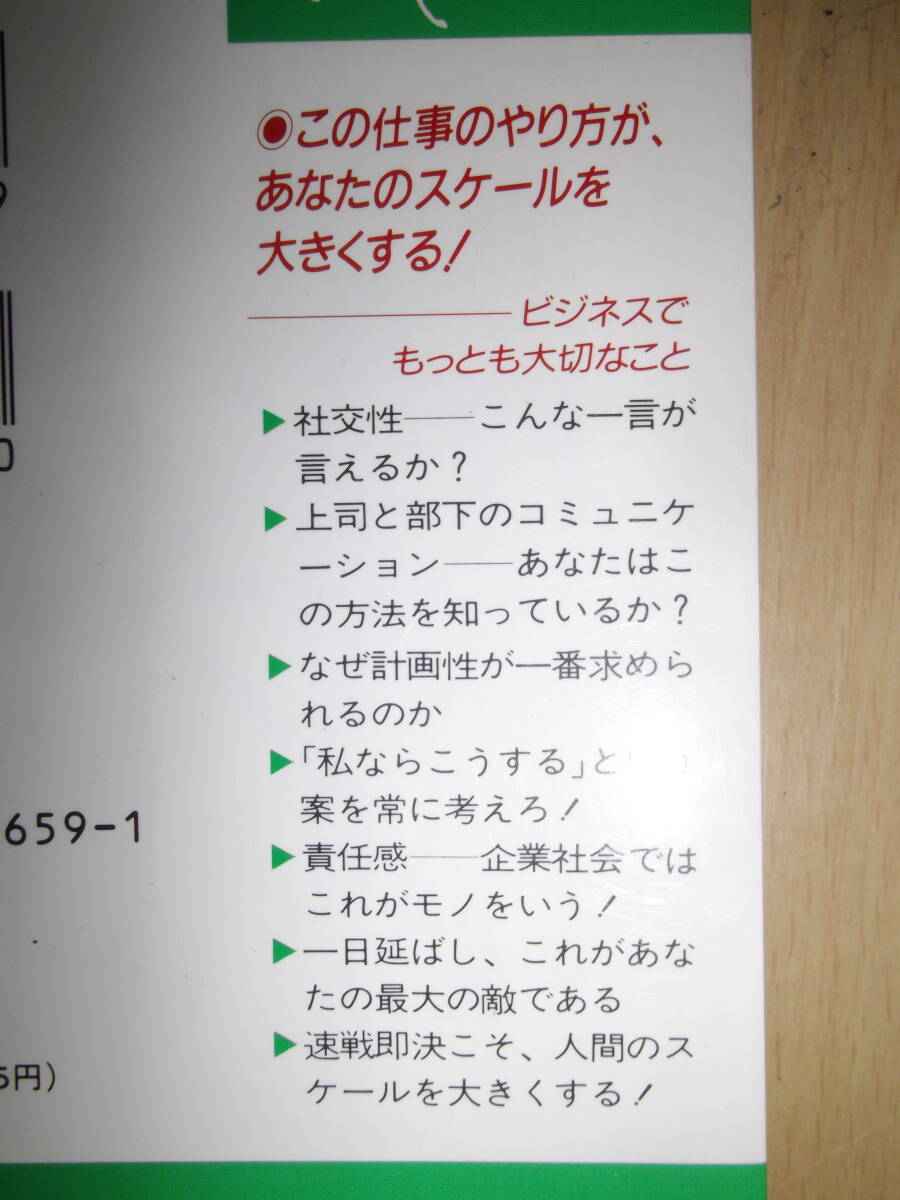 ◉この仕事のやり方が、
あなたのスケールを
大きくする!
ビジネスで
もっとも大切なこと
▶社交性──こんな一言が
言えるか?
▶上司と部下のコミュニケ
ーション──あなたはこ
の方法を知っているか?
▶なぜ計画性が一番求めら
れるのか
▶「私ならこうする」と
案を常に考えろ!
▶責任感──企業社会では
これがモノをいう!
▶一日延ばし、これがあな
たの最大の敵である
▶速戦即決こそ、人間のス
ケールを大きくする!
9
0
659-1
5円)